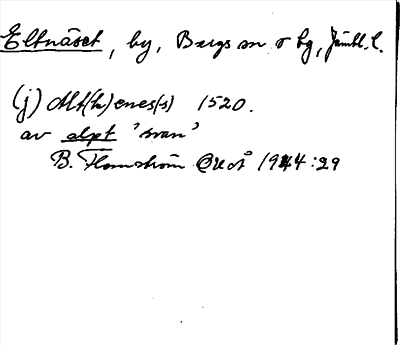 Eltnäset, by, Bergs sn o hg, Jämtl. l.
(j) Alt(h)enes(s) 1520.
av elpt 'svan'
B. Flemström 1944:29